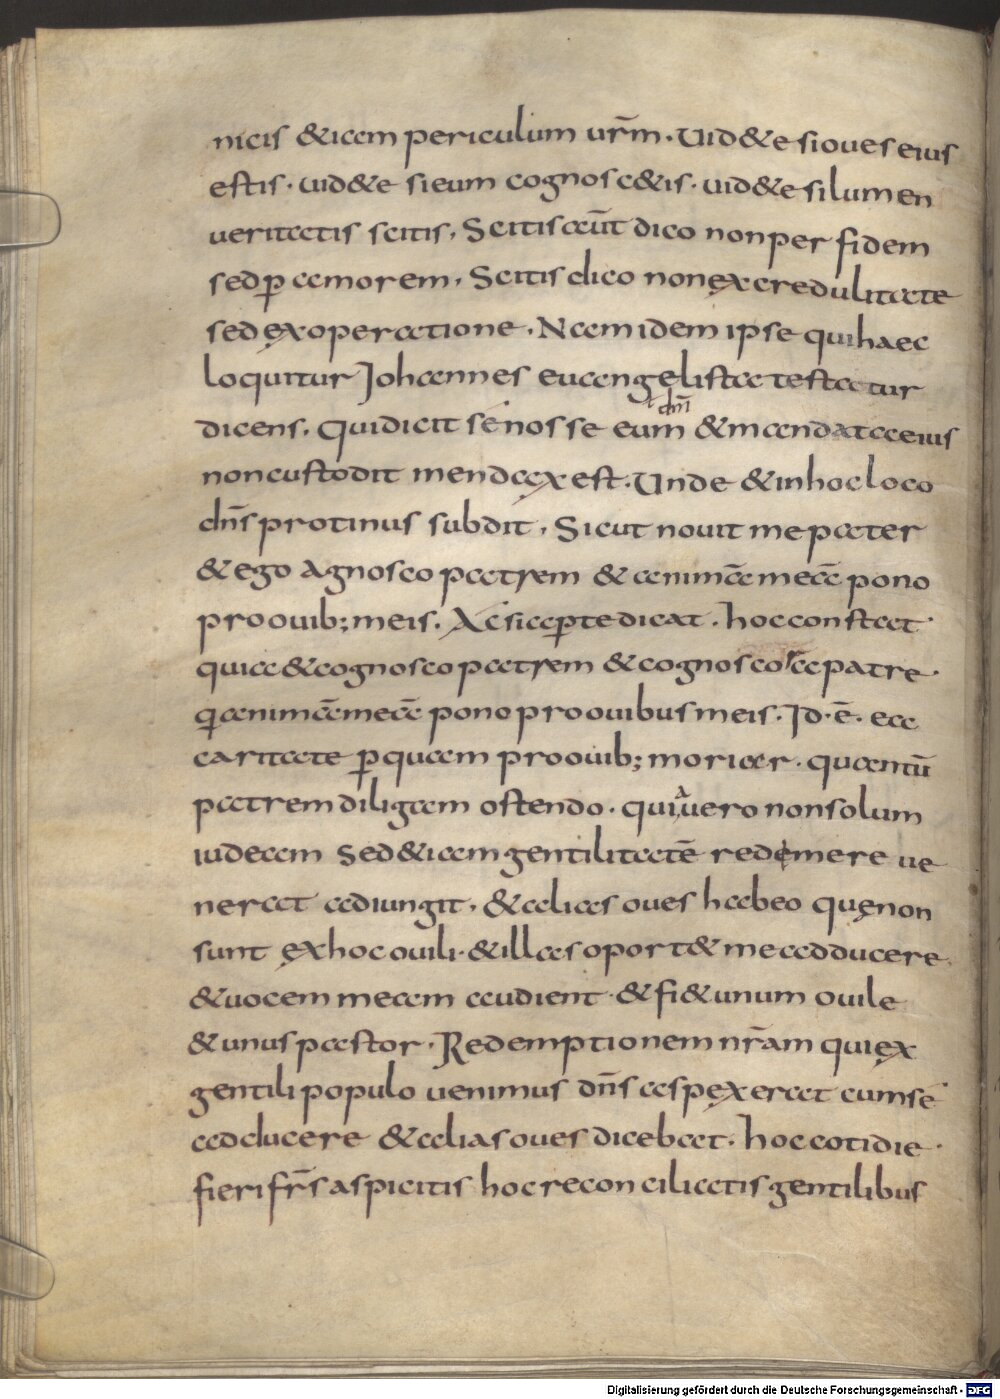 nicis &iam periculum ur̄m. Uid&e si oues eius
estis. uid&e si eum cognosc&is. uid&e si lumen
ueritatis scitis. Scitis aūt dico non per fidem
sed ꝑ amorem. Scitis dico non ex credulitate
sed ex operatione. Nam idem ipse qui haec
loquitur Johannes euangelista testatur
dicens. Qui dicit se nosse eum &mandata eius
t dm̄
non custodit mendax est. Unde &in hoc loco
dn̄s protinus subdit. Sicut nouit me pater
&ego agnosco patrem &animā meā pono
pro ouib; meis. Ac si aꝑte dicat. hoc constat
quia &cognosco patrem &cognoscor a patre.
q animā meā pono pro ouibus meis. Id. ē. ea
caritate ꝑ quam pro ouib; morior. quantū
patrem diligam ostendo. quia uero non solum
iudeam Sed &iam gentilitatē redimere ue
nerat adiungit. &alias oues habeo quę non
sunt ex hoc ouili. &illas oport& me adducere
&uocem meam audient. &fi& unum ouile
&unus pastor. Redemptionem nr̄am qui ex
gentili populo uenimus dn̄s aspexerat cum se
adducere &alias oues dicebat. hoc cotidie
fieri fr̄s aspicitis hoc reconciliatis gentilibus
Digitalisierung gefördert durch die Deutsche Forschungsgemeinschaft - DFG